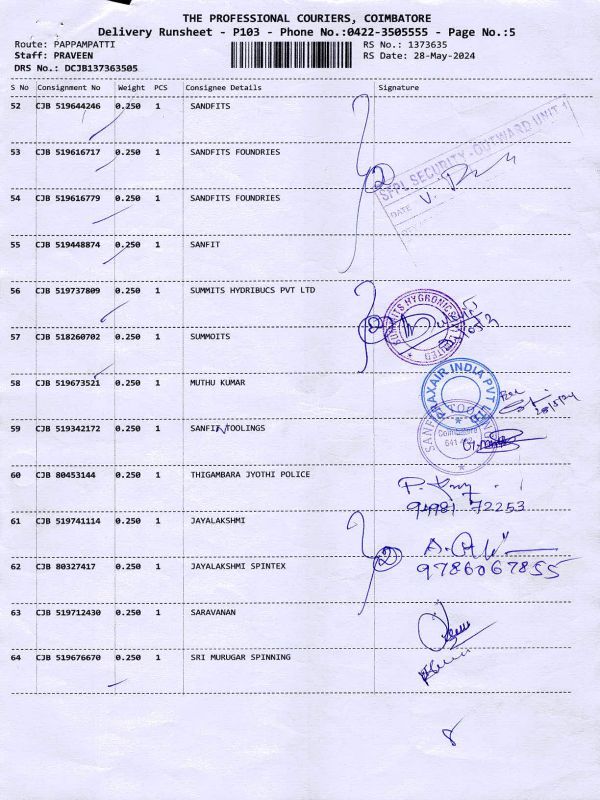 THE PROFESSIONAL COURIERS, COIMBATORE
Delivery Runsheet - P103 - Phone No.:0422-3505555 - Page No.:5
Route: PAPPAMPATTI RS No.: 1373635
Staff: PRAVEEN RS Date: 28-May-2024
DRS No.: DCJB137363505
S No Consignment No Weight PCS Consignee Details Signature
52 CJB 519644246 0.250 1 SANDFITS
53 CJB 519616717 0.250 1 SANDFITS FOUNDRIES
54 CJB 519616779 0.250 1 SANDFITS FOUNDRIES
2
SFPL SECURITY - OUTWARD UNIT 1
DATE
55 CJB 519448874 0.250 1 SANFIT
56 CJB 519737809 0.250 1 SUMMITS HYDRIBUCS PVT LTD
SUMMITS HYGRONICS
57 CJB 518260702 0.250 1 SUMMOITS
2
58 CJB 519673521 0.250 1 MUTHU KUMAR
PRAXAIR INDIA PVT LTD
59 CJB 519342172 0.250 1 SANFIN TOOLINGS
60 CJB 80453144 0.250 1 THIGAMBARA JYOTHI POLICE
94981 72253
61 CJB 519741114 0.250 1 JAYALAKSHMI
2
62 CJB 80327417 0.250 1 JAYALAKSHMI SPINTEX
9786067855
63 CJB 519712430 0.250 1 SARAVANAN
64 CJB 519676670 0.250 1 SRI MURUGAR SPINNING
8